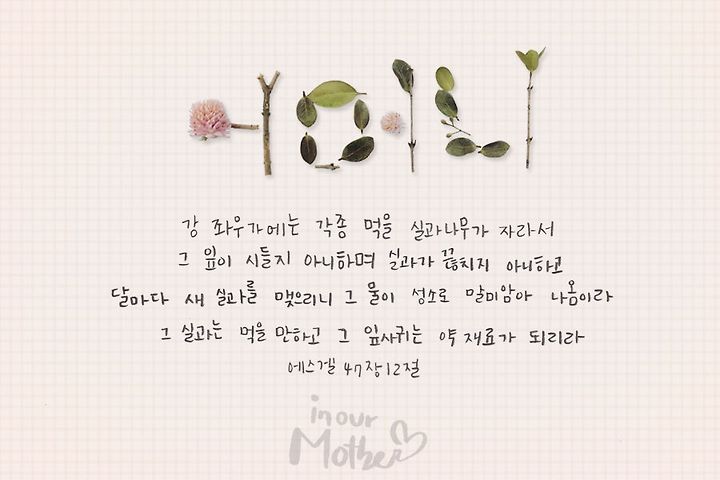 어머니
강 좌우가에는 각종 먹을 실과나무가 자라서
그 잎이 시들지 아니하며 실과가 끊치지 아니하고
달마다 새 실과를 맺으리니 그 물이 성소로 말미암아 나옴이라
그 실과는 먹을 만하고 그 잎사귀는 약 재료가 되리라
에스겔 47장12절
in our
Mother